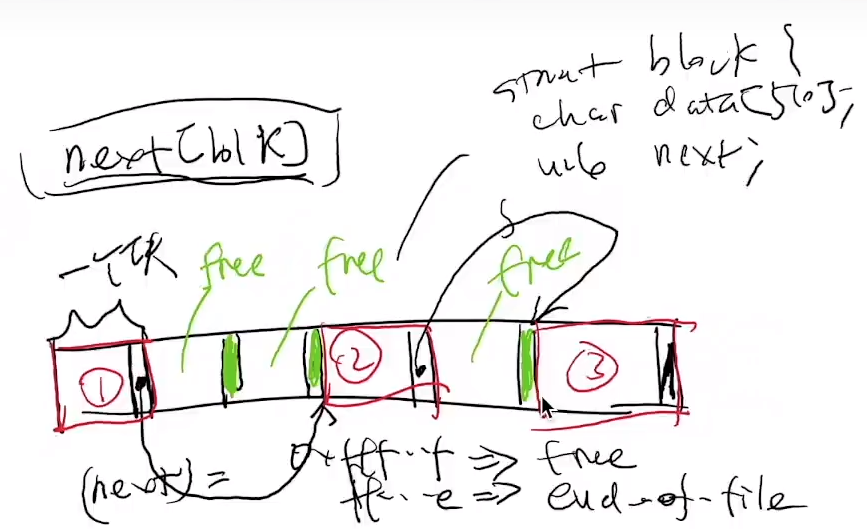 struct block {
char data[510];
u16 next;
next[blk]
一个块
free
free
free
①
②
③
(next) =
0xfff..f => free
ff..e => end-of-file